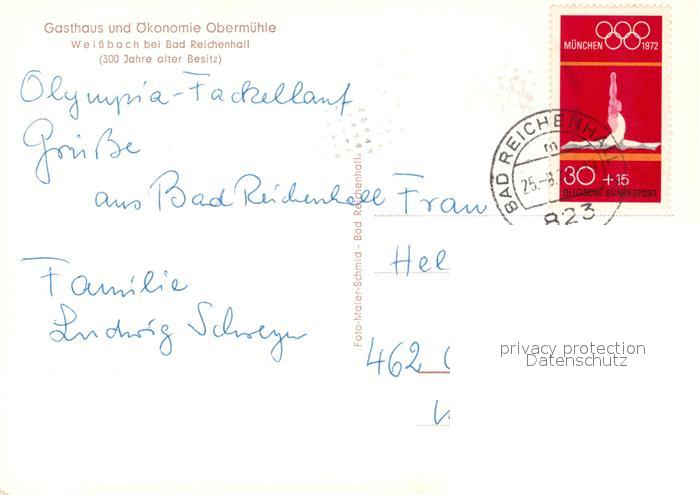 Gasthaus und Ökonomie Obermühle
Weißbach bei Bad Reichenhall
(300 Jahre alter Besitz)
MÜNCHEN 1972
Olympia-Fackellauf
Grüße
aus Bad Reichenhall
Familie
Ludwig
Foto-Maier-Schmid - Bad Reichenhall
BAD REICHENHALL
25.-8.
823
30 +15
DEUTSCHE BUNDESPOST
Frau
Hel
462
privacy protection
Datenschutz